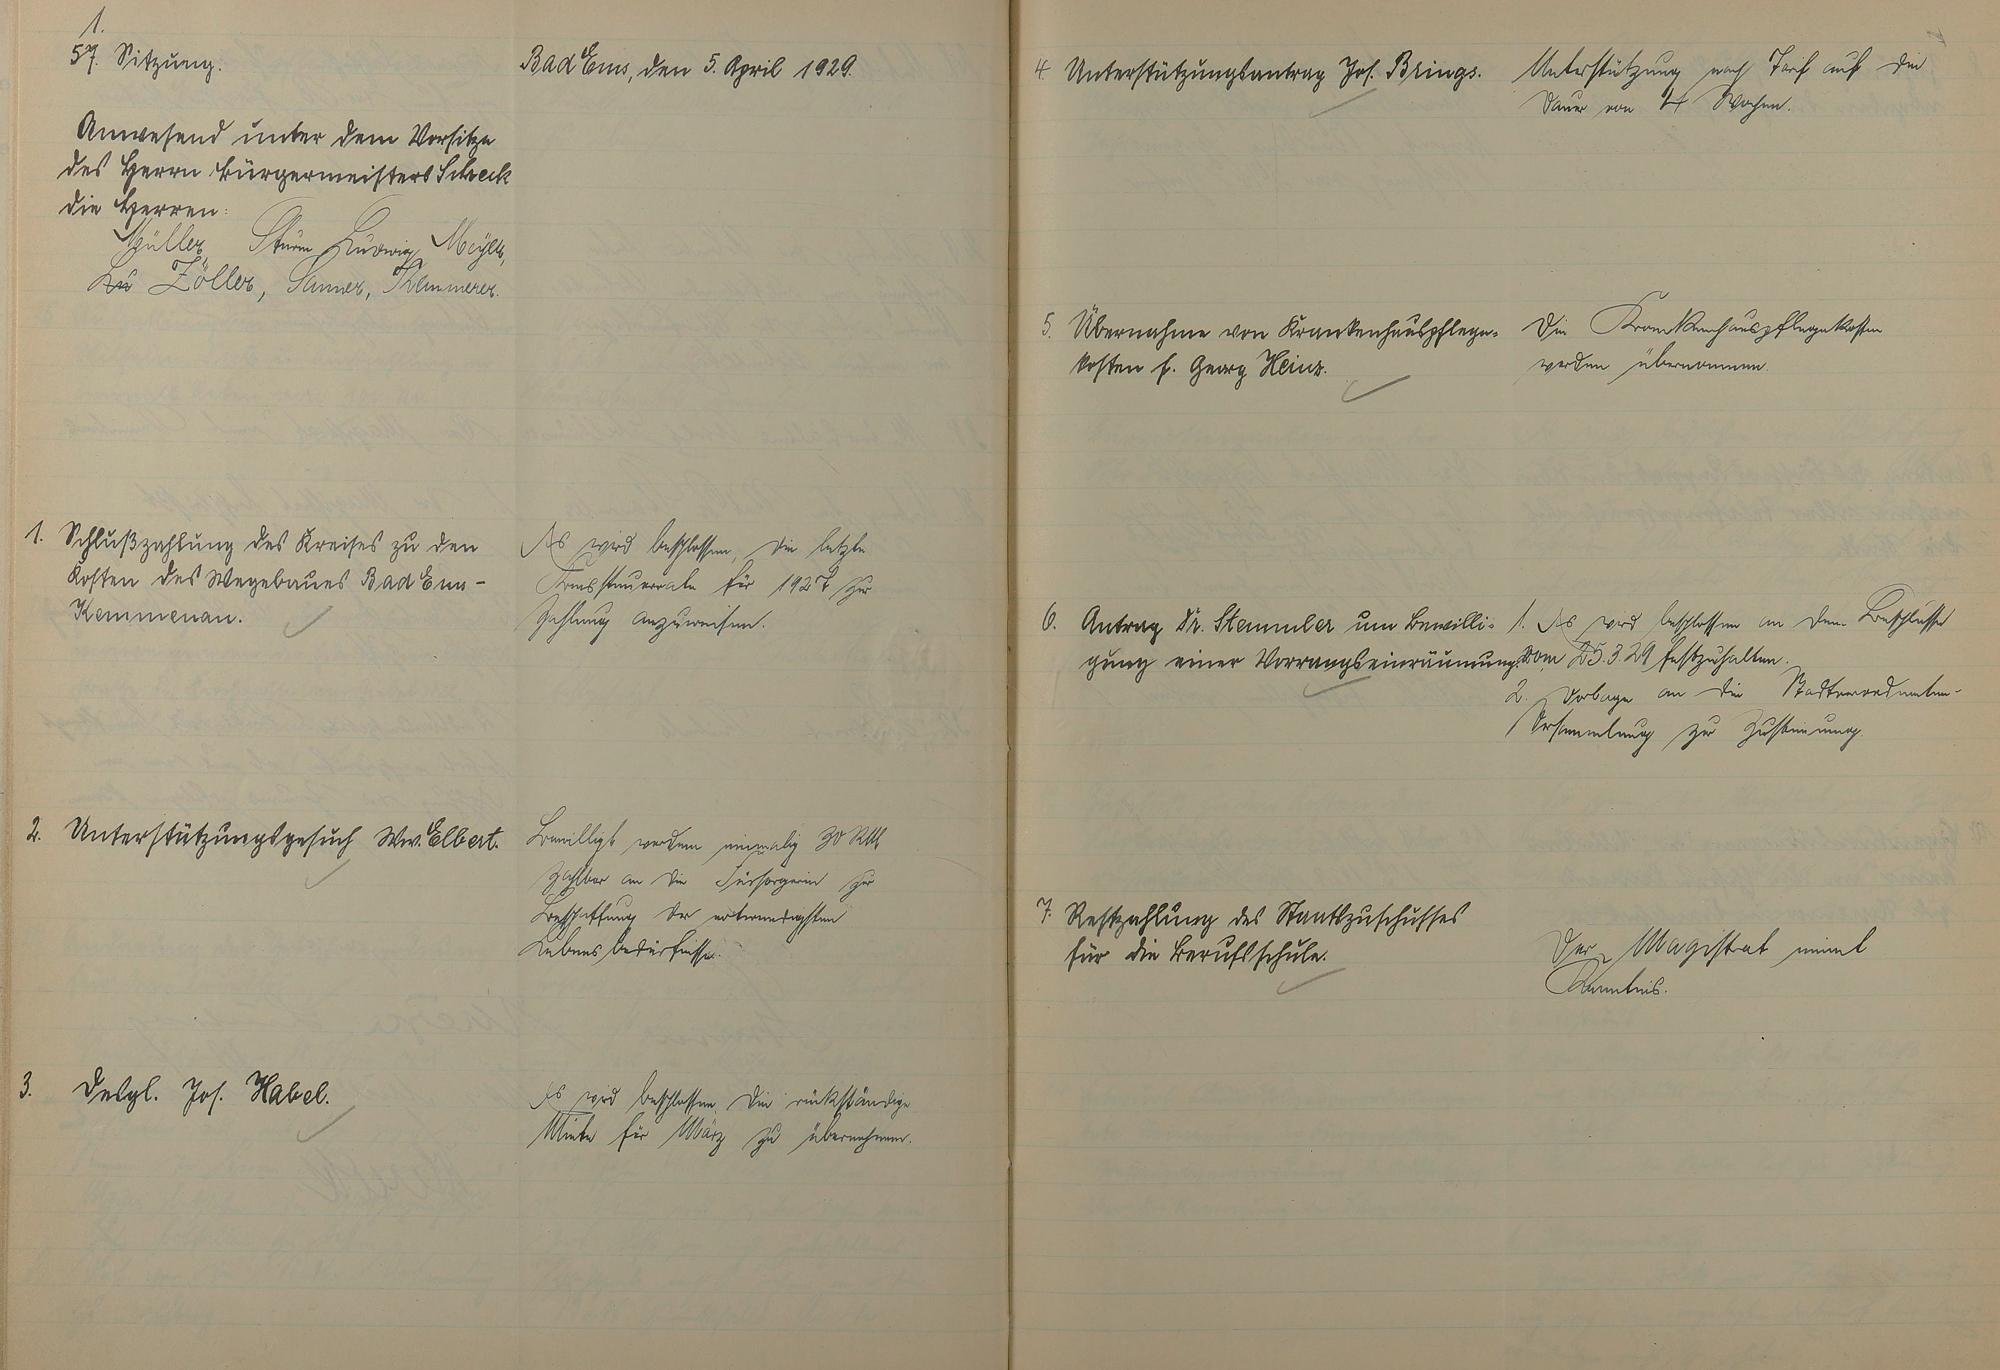 1.
57. Sitzung.
Bad Ems, den 5. April 1929.
Anwesend unter dem Vorsitze
des Herrn Bürgermeisters Schreck
die Herren:
Müller, Sturm, Ludwig,
Zöller, Sanner, Kemmerer.
1. Schlußzahlung des Kreises zu den
Kosten des Wegebaues Bad Ems-
Kemmenau.
Es wird beschlossen, die letzte
Kreissteuerrate für 1927 zur
Zahlung anzuweisen.
2. Unterstützungsgesuch Ww. Elbert.
Bewilligt werden einmalig 30 RM
zahlbar an die Fürsorgerin zur
Beschaffung der notwendigsten
Lebensbedürfnisse.
3. Desgl. Jos. Habel.
Es wird beschlossen, die rückständige
Miete für März zu übernehmen.
4. Unterstützungsantrag Jos. Brings.
Unterstützung nach Tarif auf die
Dauer von 4 Wochen.
5. Übernahme von Krankenhauspflege-
kosten f. Georg Heinz.
Die Krankenhauspflegekosten
werden übernommen.
6. Antrag Dr. Stemmler um Bewilli-
gung einer Vorrangseinräumung.
1. Es wird beschlossen an dem Beschlusse
vom 25.3.29 festzuhalten.
2. Vorlage an die Stadtverordneten-
Versammlung zur Zustimmung.
7. Restzahlung des Staatszuschusses
für die Berufsschule.
Der Magistrat nimmt
Kenntnis.